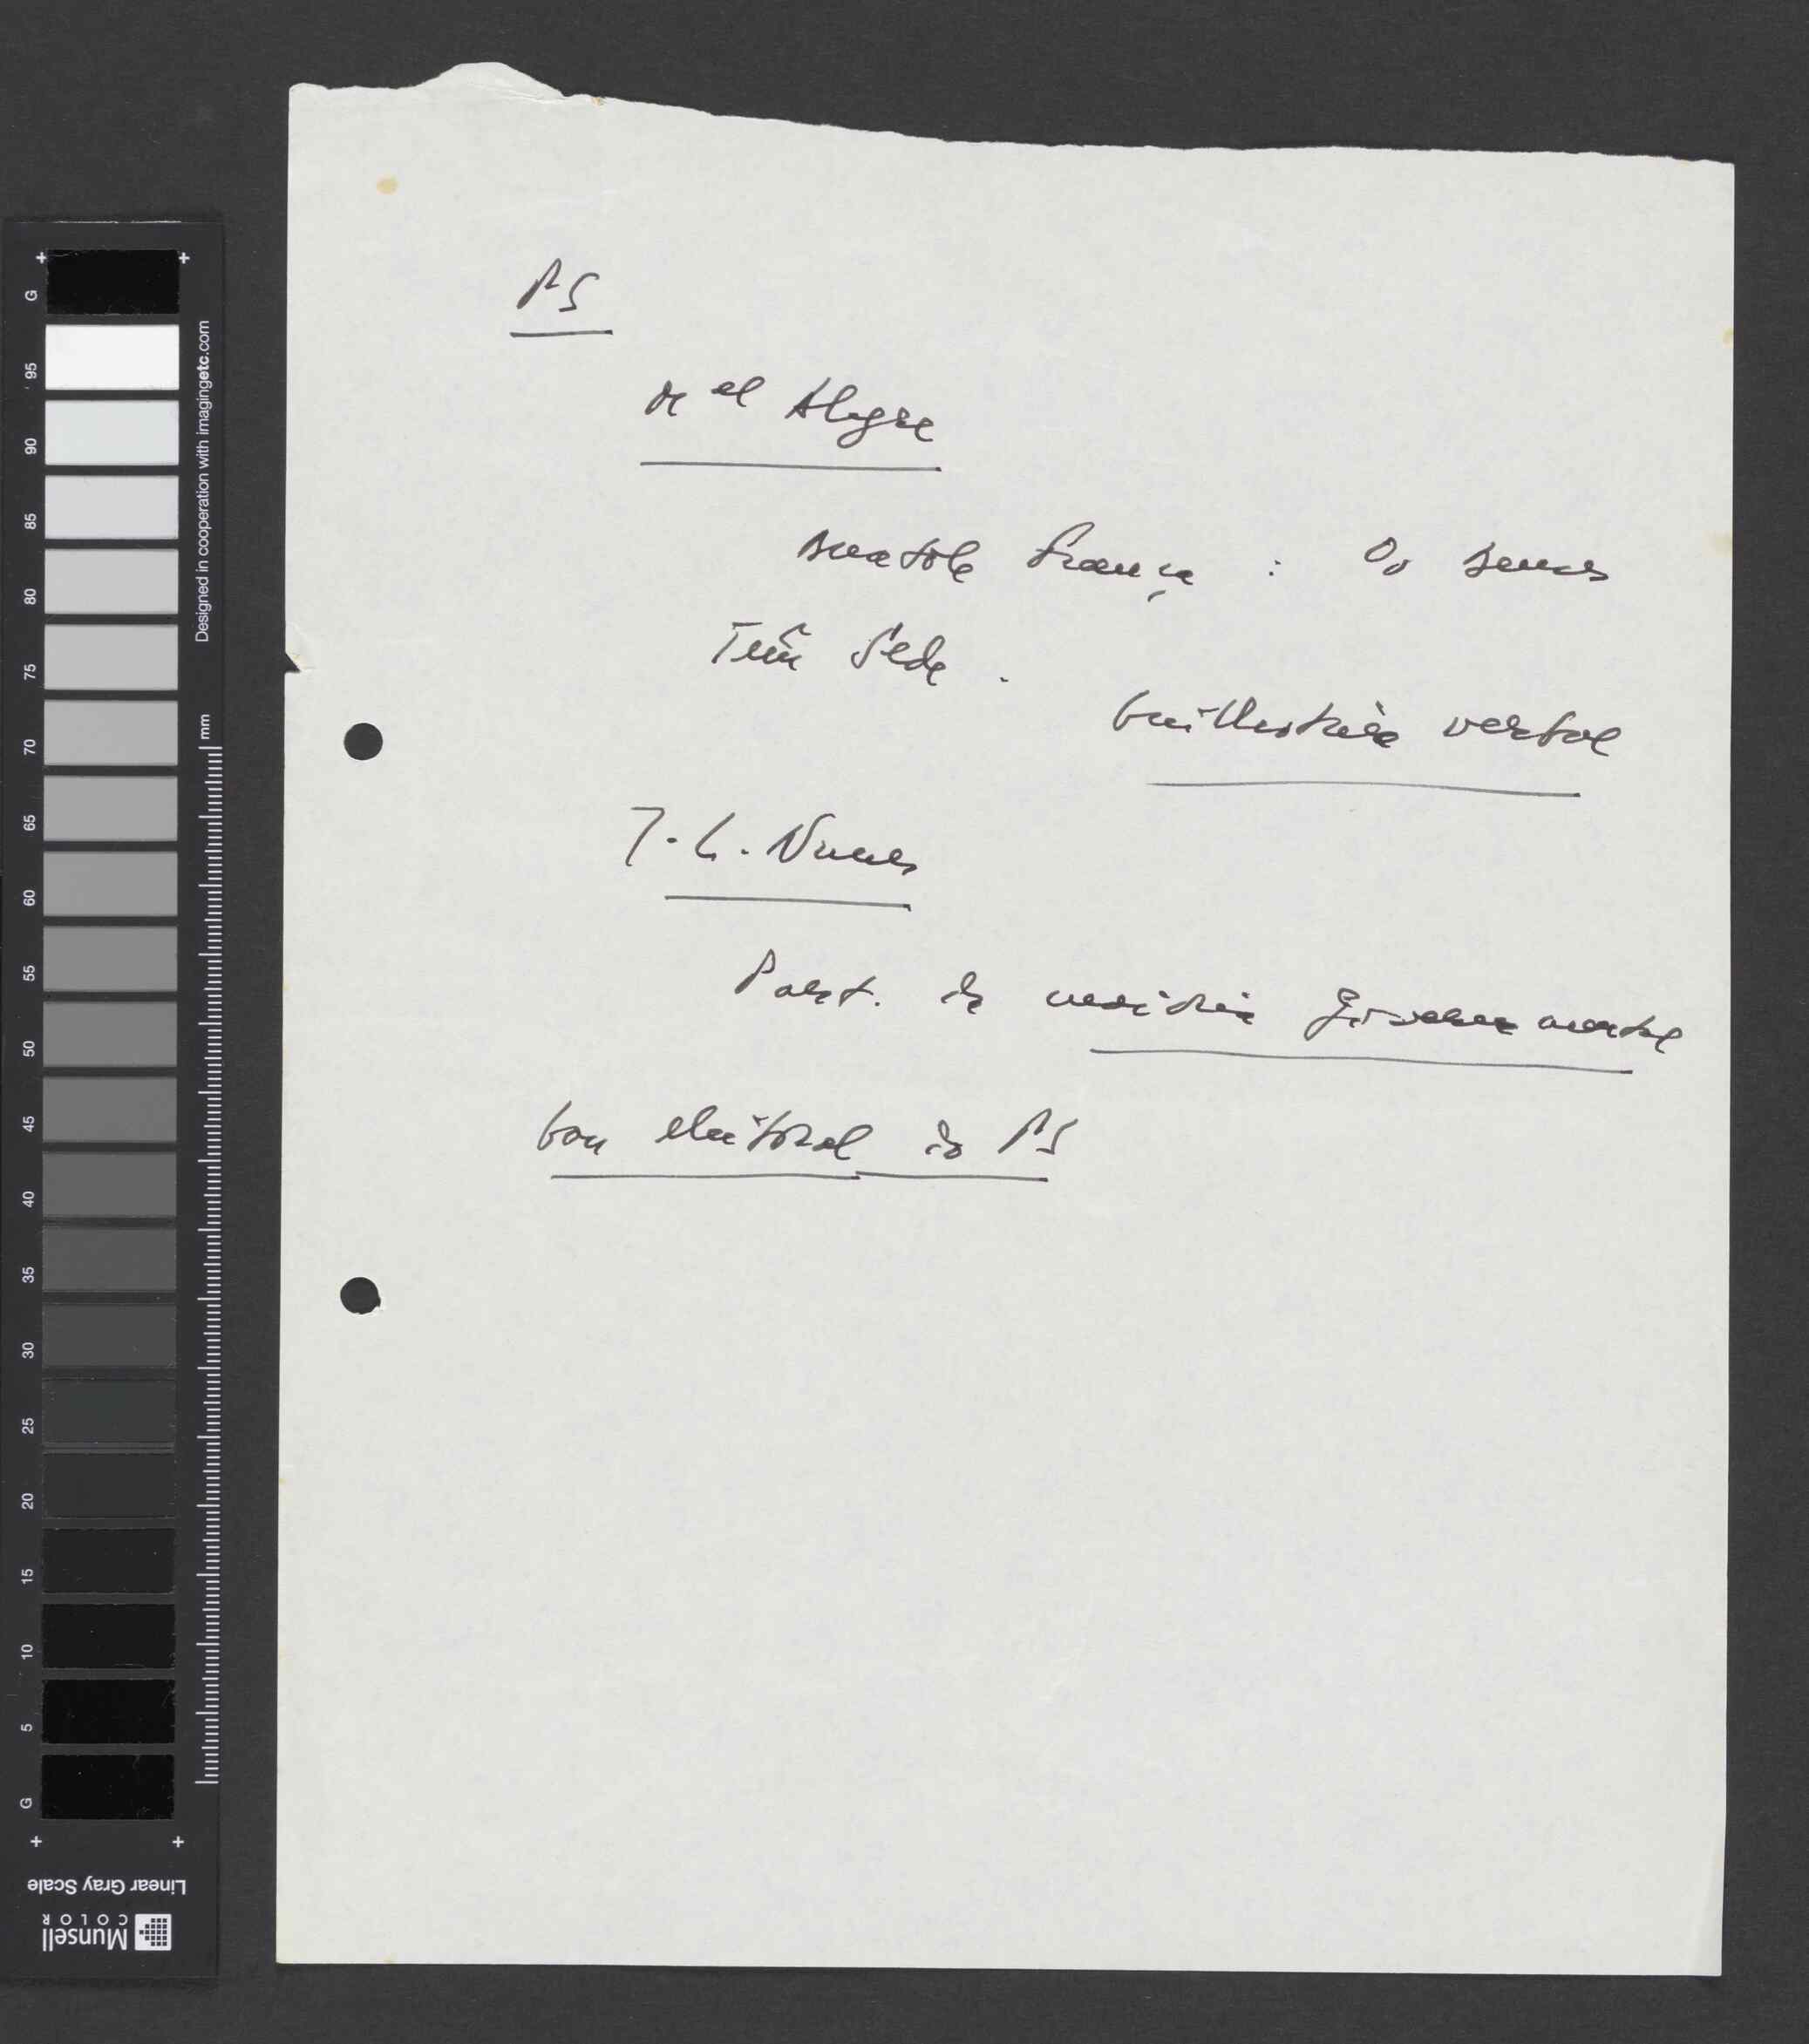 PS
M el Alegre
Anatole França : Os Deuses
Têm Sede .
Guilhotina verbal
J. L. Nunes
Part. de vocação Governamental
Bom eleitoral do PS
G
95
90
85
80
75
70
65
60
55
50
45
40
35
30
25
20
15
10
5
G
Designed in cooperation with imagingetc.com
mm
Linear Gray Scale
Munsell
COLOR